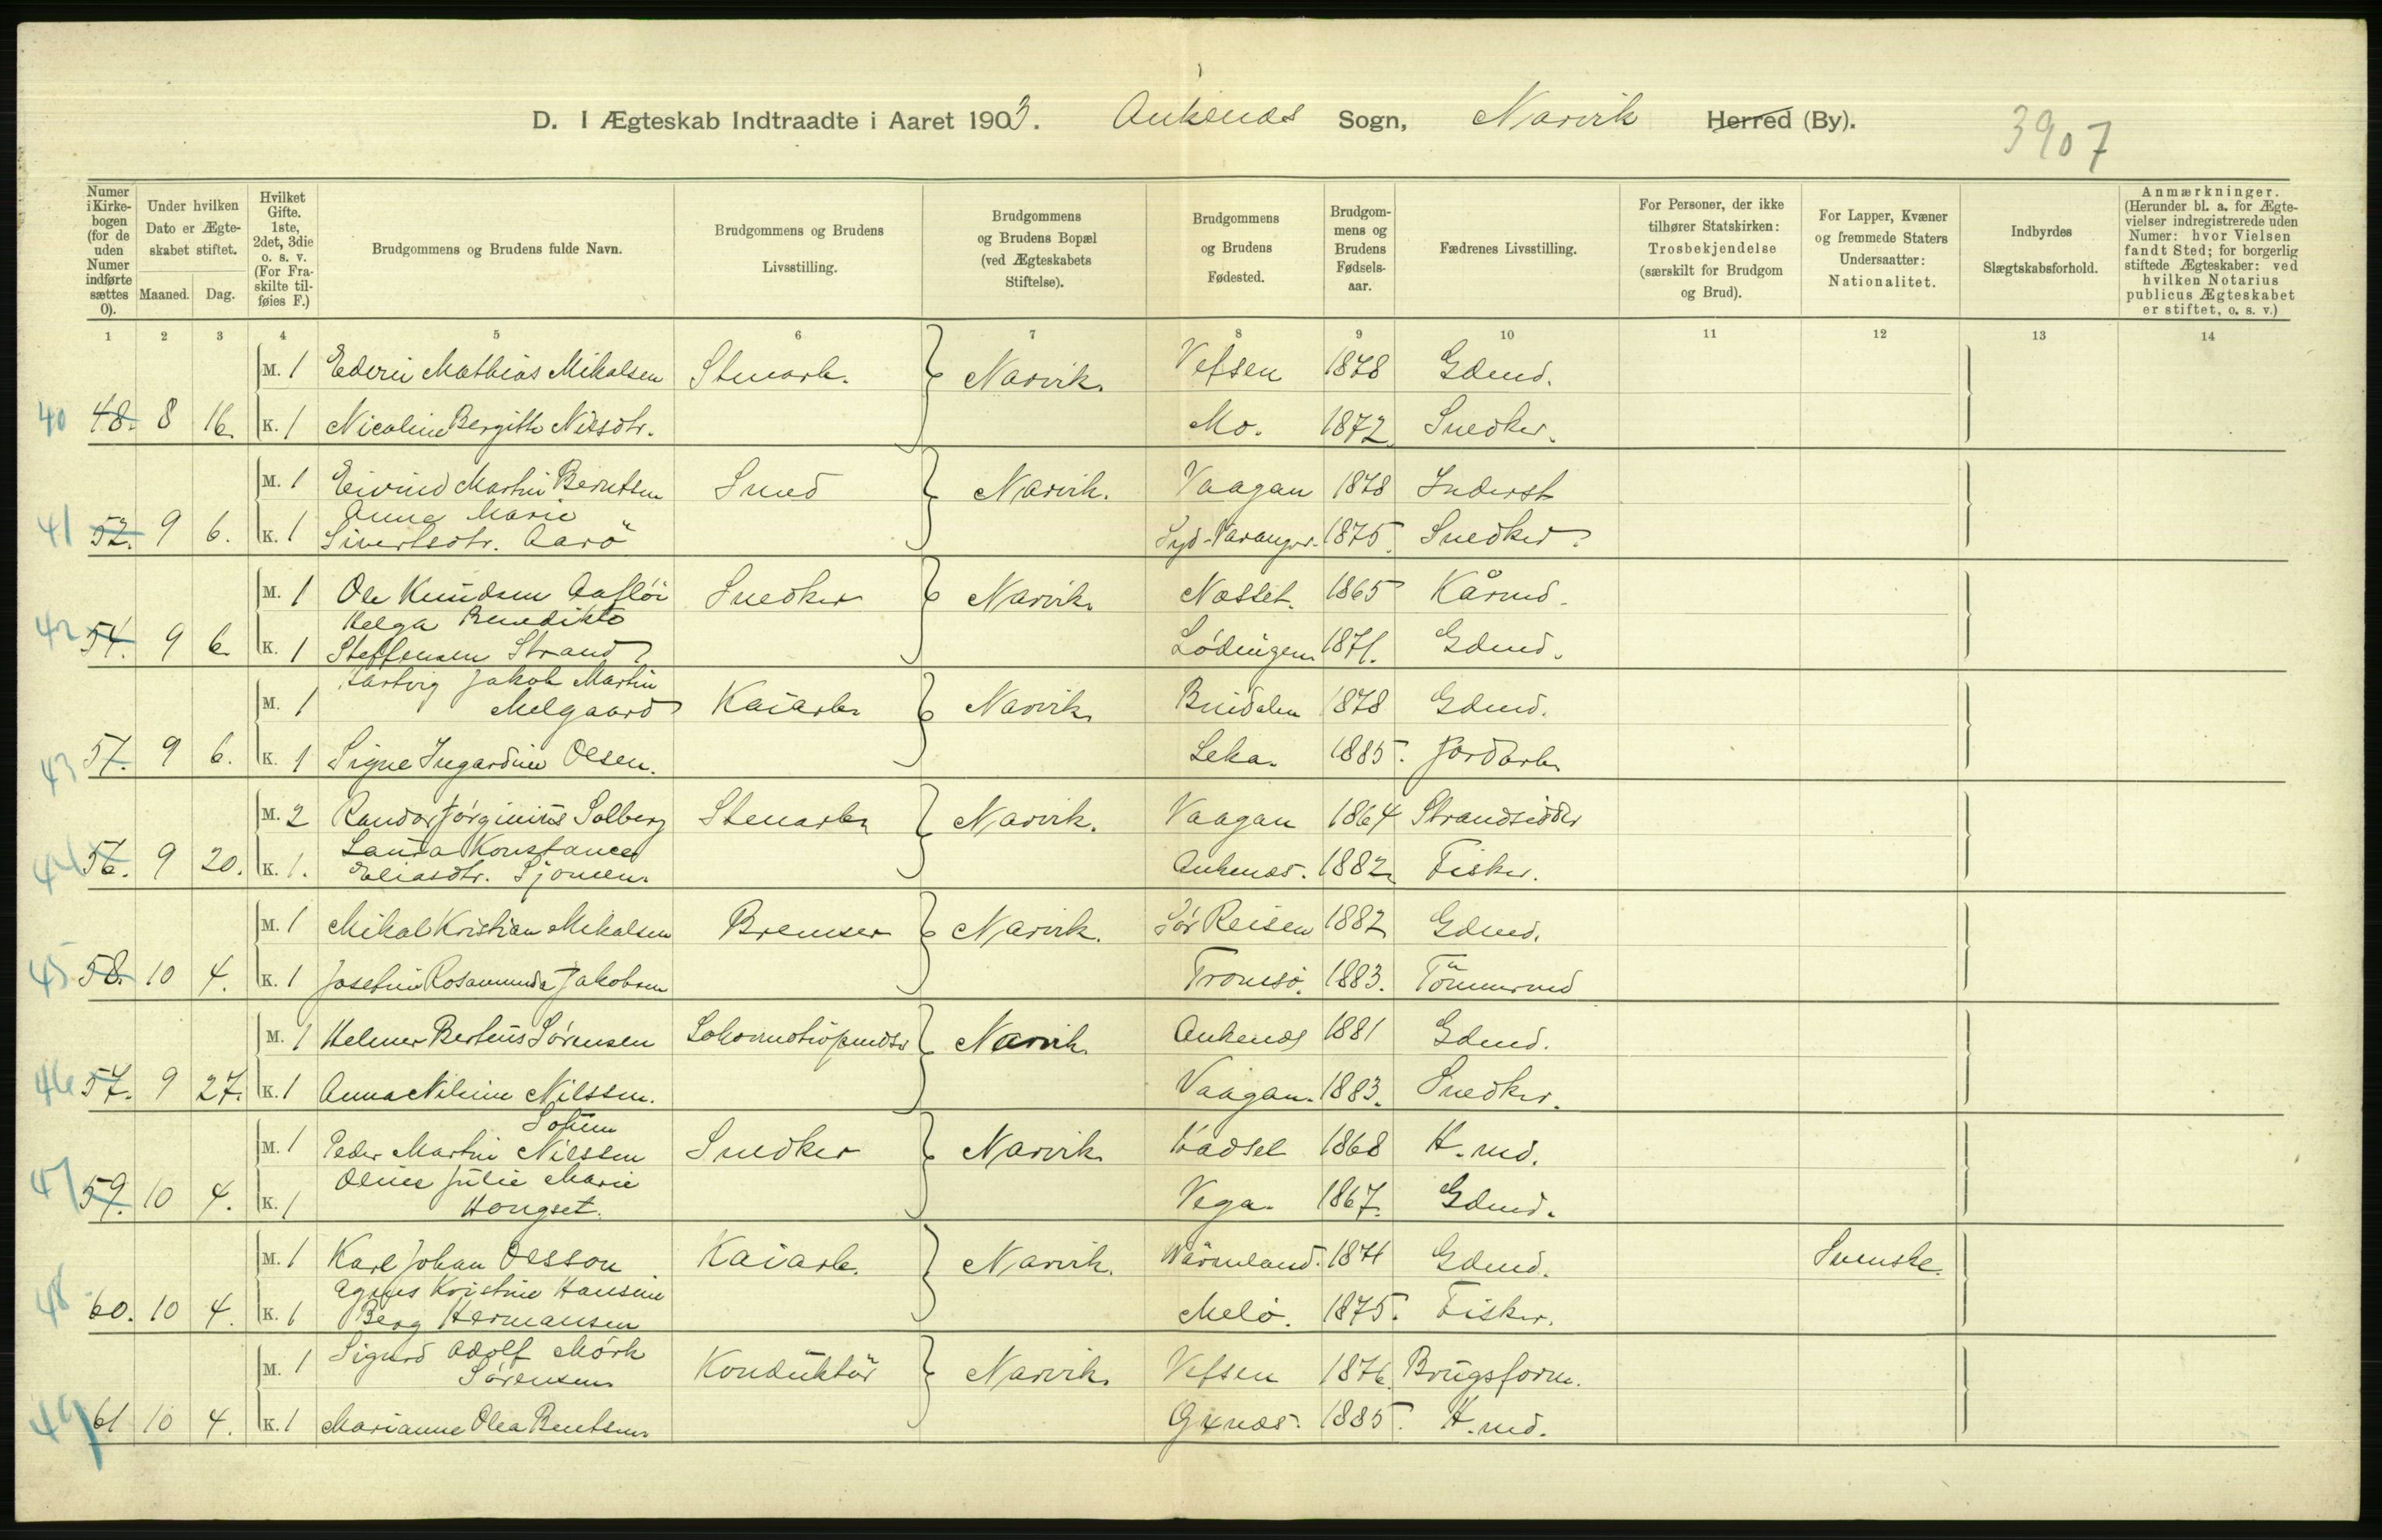 D. I Ægteskab Indtraadte i Aaret 1903. Ankenes Sogn, Narvik Herred (By).
3907
Numer i Kirkebogen (for de uden Numer indførte sættes 0).
Under hvilken Dato er Ægteskabet stiftet.
Maaned. Dag.
Hvilket Gifte. 1ste, 2det, 3die o. s. v. (For Fraskilte tilføies F.)
Brudgommens og Brudens fulde Navn.
Brudgommens og Brudens Livsstilling.
Brudgommens og Brudens Bopæl (ved Ægteskabets Stiftelse).
Brudgommens og Brudens Fødested.
Brudgommens og Brudens Fødselsaar.
Fædrenes Livsstilling.
For Personer, der ikke tilhører Statskirken: Trosbekjendelse (særskilt for Brudgom og Brud).
For Lapper, Kvæner og fremmede Staters Undersaatter: Nationalitet.
Indbyrdes Slægtskabsforhold.
Anmærkninger. (Herunder bl. a. for Ægtevielser indregistrerede uden Numer: hvor Vielsen fandt Sted; for borgerlig stiftede Ægteskaber: ved hvilken Notarius publicus Ægteskabet er stiftet, o. s. v.)
1 2 3 4 5 6 7 8 9 10 11 12 13 14
M. 1 Mathias Mikalsen Stenarb. Narvik. Vefsen 1878 Gdmd.
40 48. 8 16. K. 1 Nicoline Bergitte Nilsdtr. Mo. 1872 Snedker.
M. 1 Eivind Martin Berntsen Smed Narvik. Vaagan 1878 Inderst
Anna Marie
41 52. 9 6. K. 1 Sivertsdtr. Aarö Syd-Varanger. 1875. Snedker.
M. 1 Ole Knudsen Aafløi Snedker Narvik. Nesset. 1865 Kårmd.
Helga Benedikte
42 54. 9 6. K. 1 Steffensen Strand Lødingen 1871. Gdmd.
Jakob Martin
M. 1 Melgaard Kaiarb. Narvik. Bindalen 1878 Gdmd.
43 57. 9 6. K. 1 Signe Ingardine Olsen. Leka. 1885. Jordarb.
M. 2 Randor Jørginius Solberg Stenarb. Narvik. Vaagan 1864 Strandsidder
Laura Konstance
44 56. 9 20. K. 1. Eliasdtr. Sjomen. Ankenes. 1882. Fisker.
M. 1 Mikal Kristian Mikalsen Bremser Narvik. Sør Reisen 1882 Gdmd.
45 58. 10 4. K. 1 Josefine Rosamunda Jakobsen Tromsø. 1883. Tömmermd
M. 1 Helmer Berteus Sørensen Lokomotivpudser Narvik Ankenes 1881 Gdmd.
46 57. 9 27. K. 1 Anna Niline Nilssen. Vaagan. 1883. Snedker.
M. 1 Peder Martin Nilssen Snedker Narvik Hadsel 1868 H.md.
Oline Julie Marie
47 59. 10 4. K. 1 Hongset. Vega. 1867. Gdmd.
M. 1 Karl Johan Olsson Kaiarb. Narvik. Wärmland. 1871 Gdmd. Svenske.
Agnes Kristine Hansine
48 60. 10 4. K. 1 Berg Hermansen Melö. 1875. Fisker.
Sigurd Adolf Mörk
M. 1 Sørensen Konduktör Narvik. Vefsen 1876. Brugsform.
49 61 10 4. K. 1 Marianne Olea Bentsen. 1885. H.md.